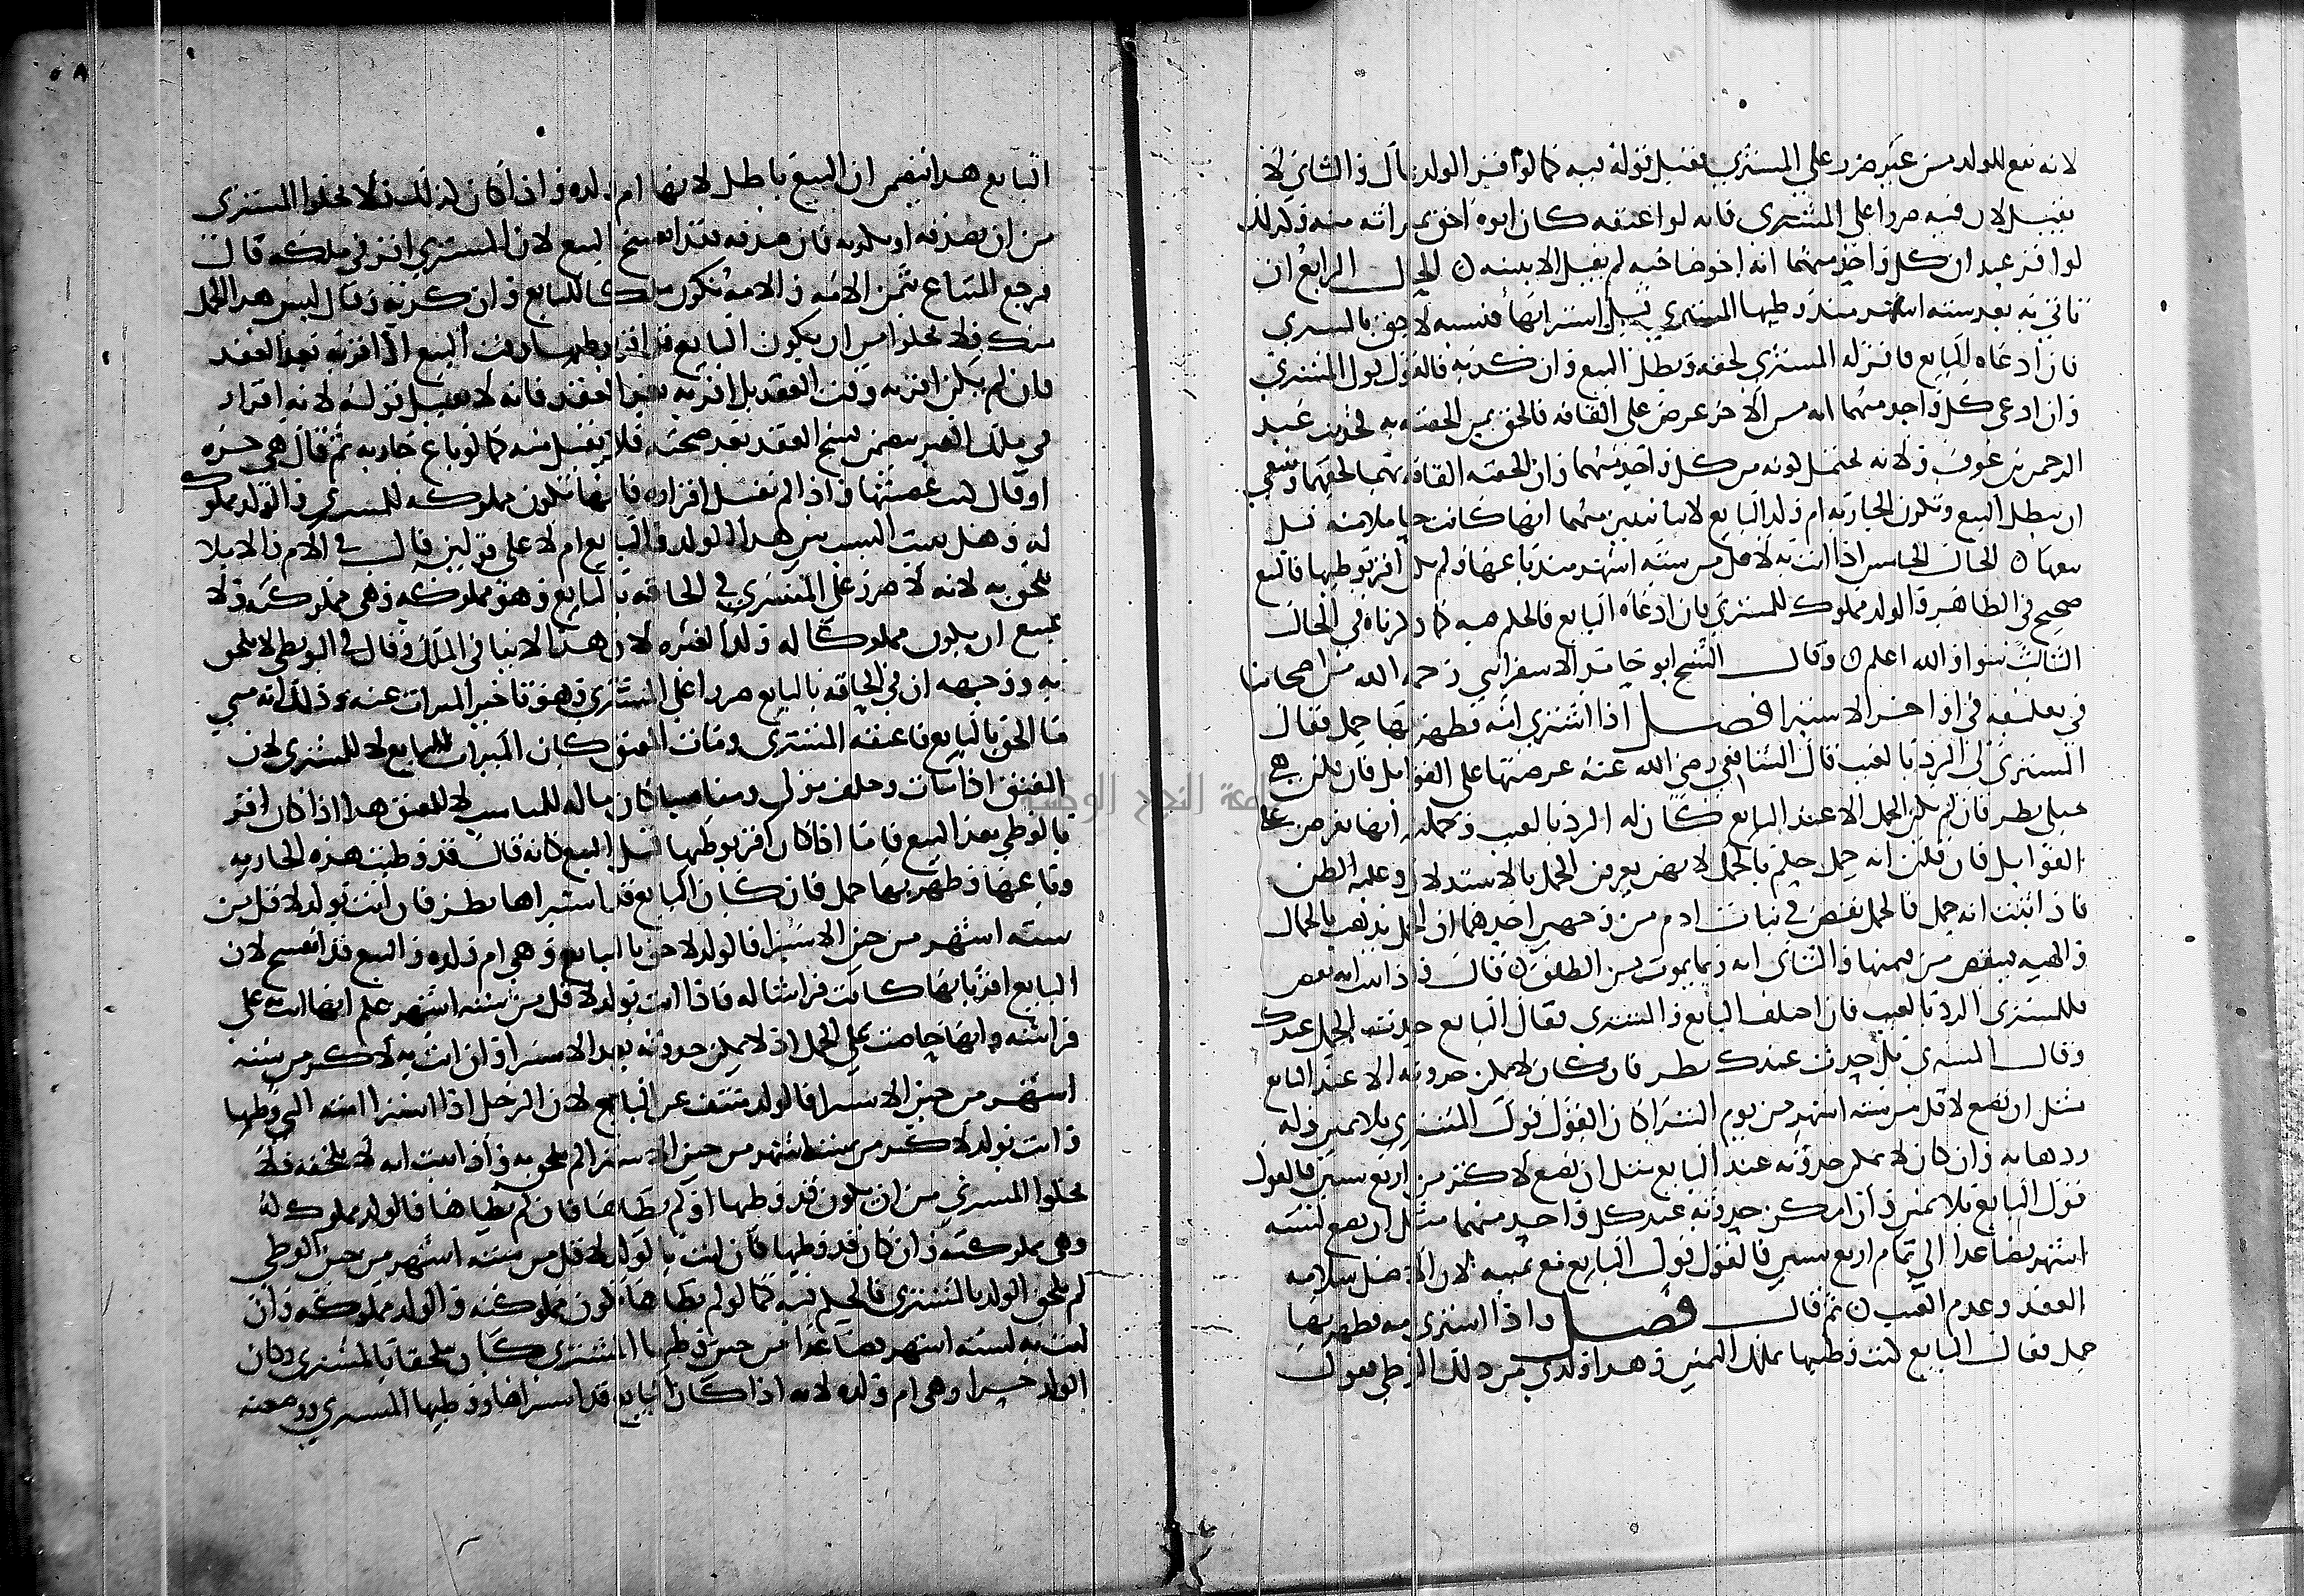 لانه نفع للولد من غير ضرر على المشتري فقبل قوله فيه كما لو اقر الولد بمال والثاني لا
يقبل لان فيه ضررا على المشتري فانه لو اعتقه كان ابوه احق بميراثه منه وكذلك
لو اقر عبد ان كل واحد منهما انه اخو صاحبه لم يقبل الا ببينه الحال الرابع ان
تاتي به بعد سته اشهر منذ وطيها المشتري قبل استبرائها فنسبه لاحق بالمشتري
فان ادعاه البايع فاقر له المشتري لحقه وبطل البيع وان كذبه فالقول قول المشتري
وان ادعى كل واحد منهما انه من الاخر عرض على القافه فالحق بمن الحقته به لحديث عبد
الرحمن بن عوف ولانه يحتمل كونه من كل واحد منهما وان الحقته القافه بهما لحقهما وينبغي
ان يبطل البيع وتكون الجاريه ام ولد البايع لانا نتبين انها كانت حاملا منه قبل
بيعها الحال الخامس اذا اتت به لاقل من سته اشهر منذ باعها ولم يكن اقر بوطيها فالبيع
صحيح في الظاهر والولد مملوك للمشتري فان ادعاه البايع فالحكم فيه كما ذكرناه في الحال
الثالث سوا والله اعلم وقال الشيخ ابو حامد الاسفرايني رحمه الله من اصحابنا
في تعليقه في اواخر الاستبرا فصل اذا اشترى امه فظهر بها حمل فقال
المشتري لي الرد بالعيب قال الشافعي رضي الله عنه عرضتها على القوابل فان قلن هي
حبلى نظر فان لم يكن الحمل الا عند البايع كان له الرد بالعيب وجملته انها تعرض على
القوابل فان قلن انه حمل حكم بالحمل لانهن يعرفن الحمل بالاستدلال وغلبه الظن
فاذا ثبت انه حمل فالحمل نقص في بنات ادم من وجهين احدهما ان الحمل يذهب بالجمال
والهيه فينقص من قيمتها والثاني انه ربما يموت من الطلق قال واذا ثبت انه نقص
فللمشتري الرد بالعيب فان اختلف البايع والمشتري فقال البايع حدث الحمل عندك
وقال المشتري بل حدث عندك نظر فان كان لا يمكن حدوثه الا عند البايع
مثل ان تضع لاقل من سته اشهر من يوم الشرا كان القول قول المشتري بلا يمين وله
ردها به وان كان لا يمكن حدوثه عند البايع مثل ان تضع لاكثر من اربع سنين فالقول
قول البايع بلا يمين وان امكن حدوثه عند كل واحد منهما مثل ان تضع لسته
اشهر فصاعدا الى تمام اربع سنين فالقول قول البايع مع يمينه لان الاصل سلامه
العقد وعدم العيب ثم قال فصل واذا اشترى امه فظهر بها
حمل فقال البايع كنت وطيتها بملك اليمين وهذا ولدي من ذلك الوطي فقول
البايع هذا يتضمن ان البيع باطل لانها ام ولده واذا كان كذلك فلا يخلوا المشتري
من ان يصدقه او يكذبه فان صدقه فقد انفسخ البيع لان المشتري اقر في ملكه قال
فيرجع المبتاع بثمن الامه والامه تكون ملكا للبايع وان كذبه وقال ليس هذا الحمل
منك فلا يخلوا من ان يكون البايع قد اقر بوطيها وقت البيع او اقر به بعد العقد
فان لم يكن اقر به وقت العقد بل اقر به بعد العقد فانه لا يقبل قوله لانه اقرار
في ملك الغير يتضمن فسخ العقد بعد صحته فلا يقبل منه كما لو باع جاريه ثم قال هي حره
او قال كنت غصبتها واذا لم نقبل اقراره فانها تكون مملوكه للمشتري والولد مملوك
له وهل يثبت النسب بين هذا الولد والبايع ام لا على قولين قال في الام والاملا
يلحق به لانه لا ضرر على المشتري في الحاقه بالبايع وهو مملوكه وهي مملوكته ولا
يمتنع ان يكون مملوكا له ولدا لغيره لان هذا لا ينافي الملك وقال في البويطي لا يلحق
به ووجهه ان في الحاقه بالبايع ضررا على المشتري وهو تاخير الميراث عنه وذلك انه متى
ما الحق بالبايع فاعتقه المشتري ومات المعتق كان الميراث للبايع لا للمشتري لان
المعتق اذا مات وخلف مولى ومناسبا كان ماله للمناسب لا للمعتق هذا اذا كان اقر
بالوطي بعد البيع فاما اذا كان اقر بوطيها قبل البيع كانه قال قد وطيت هذه الجاريه
وباعها وظهر بها حمل فان كان البايع قد استبراها نظر فان اتت بولد لاقل من
سته اشهر من حين الاستبرا فالولد لاحق بالبايع وهي ام ولده والبيع قد انفسخ لان
البايع اقر بانها كانت فراشا له فاذا اتت بولد لاقل من سته اشهر علم انها اتت على
فراشه وانها حاضت على الحمل اذ لا يمكن حدوثه بعد الاستبرا وان اتت به لاكثر من سته
اشهر من حين الاستبرا فالولد منتف عن البايع لان الرجل اذا استبرا امته التي وطيها
واتت بولد لاكثر من سته اشهر من حين الاستبرا لم يلحق به واذا ثبت انه لا يلحقه فلا
يخلوا المشتري من ان يكون قد وطيها او لم يطاها فان لم يطاها فالولد مملوك له
وهي مملوكته وان كان قد وطيها فان اتت بالولد لاقل من سته اشهر من حين الوطي
لم يلحق الولد بالمشتري فالحكم فيه كما لو لم يطاها تكون مملوكته والولد مملوكه وان
اتت به لسته اشهر فصاعدا من حين وطيها المشتري كان ملحقا بالمشتري وكان
الولد حرا وهي ام ولده لانه اذا كان البايع قد استبراها ووطيها المشتري ووضعته